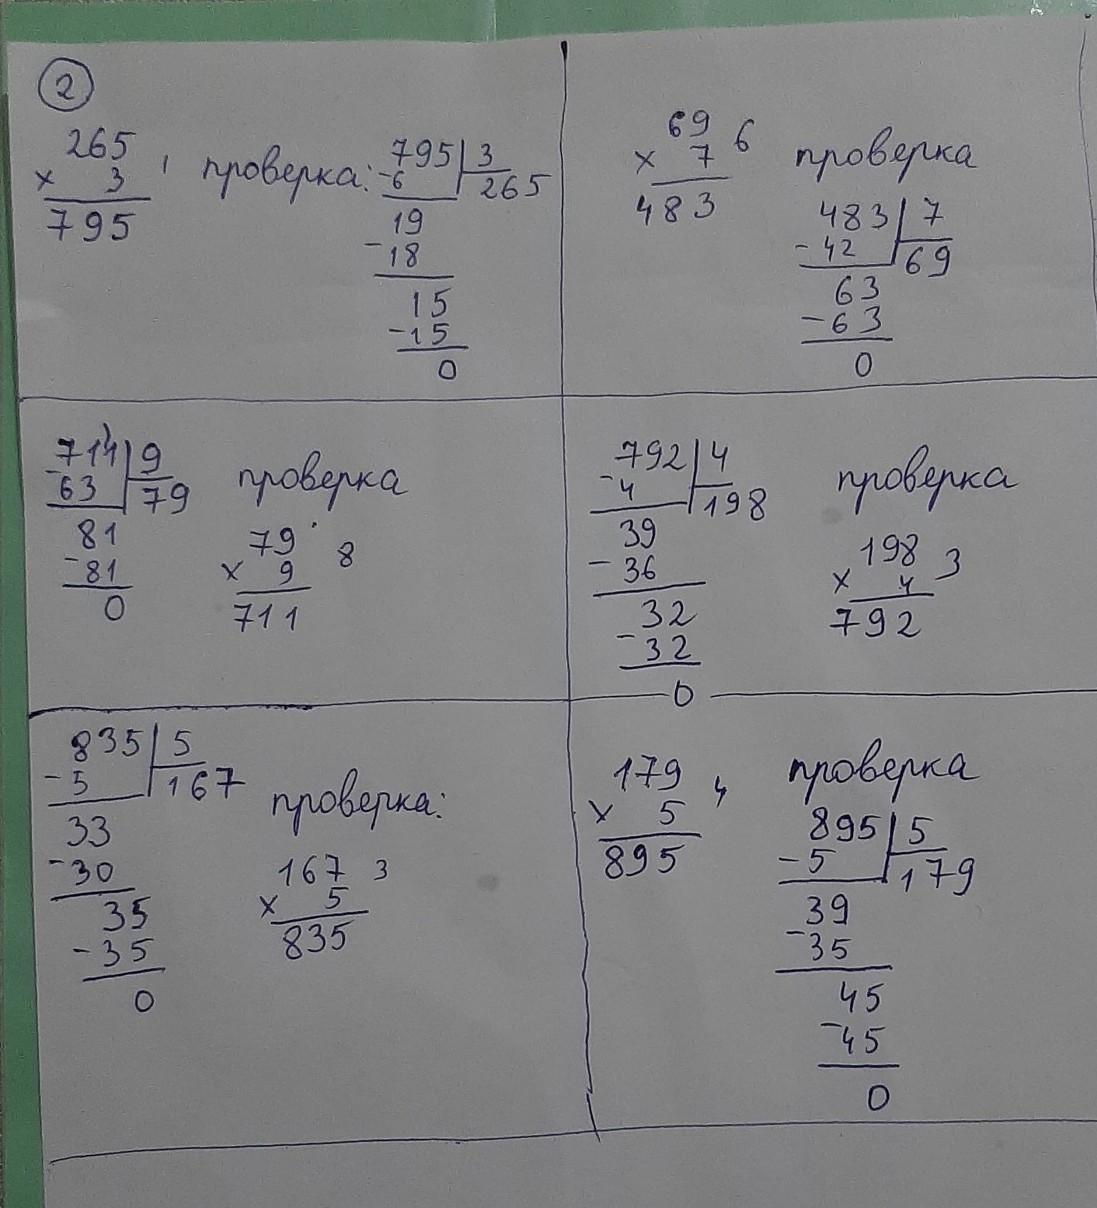 2
265
× 3 1
795
проверка:
795 3
-6 265
19
-18
15
-15
0
69
× 7 6
483
проверка
483 7
-42 69
63
-63
0
714 9
-63 79
81
-81
0
проверка
79
× 9 8
711
792 4
-4 198
39
-36
32
-32
0
проверка
198 3
× 4
792
835 5
-5 167
33
-30
35
-35
0
проверка:
167 3
× 5
835
179
× 5 4
895
проверка
895 5
-5 179
39
-35
45
-45
0